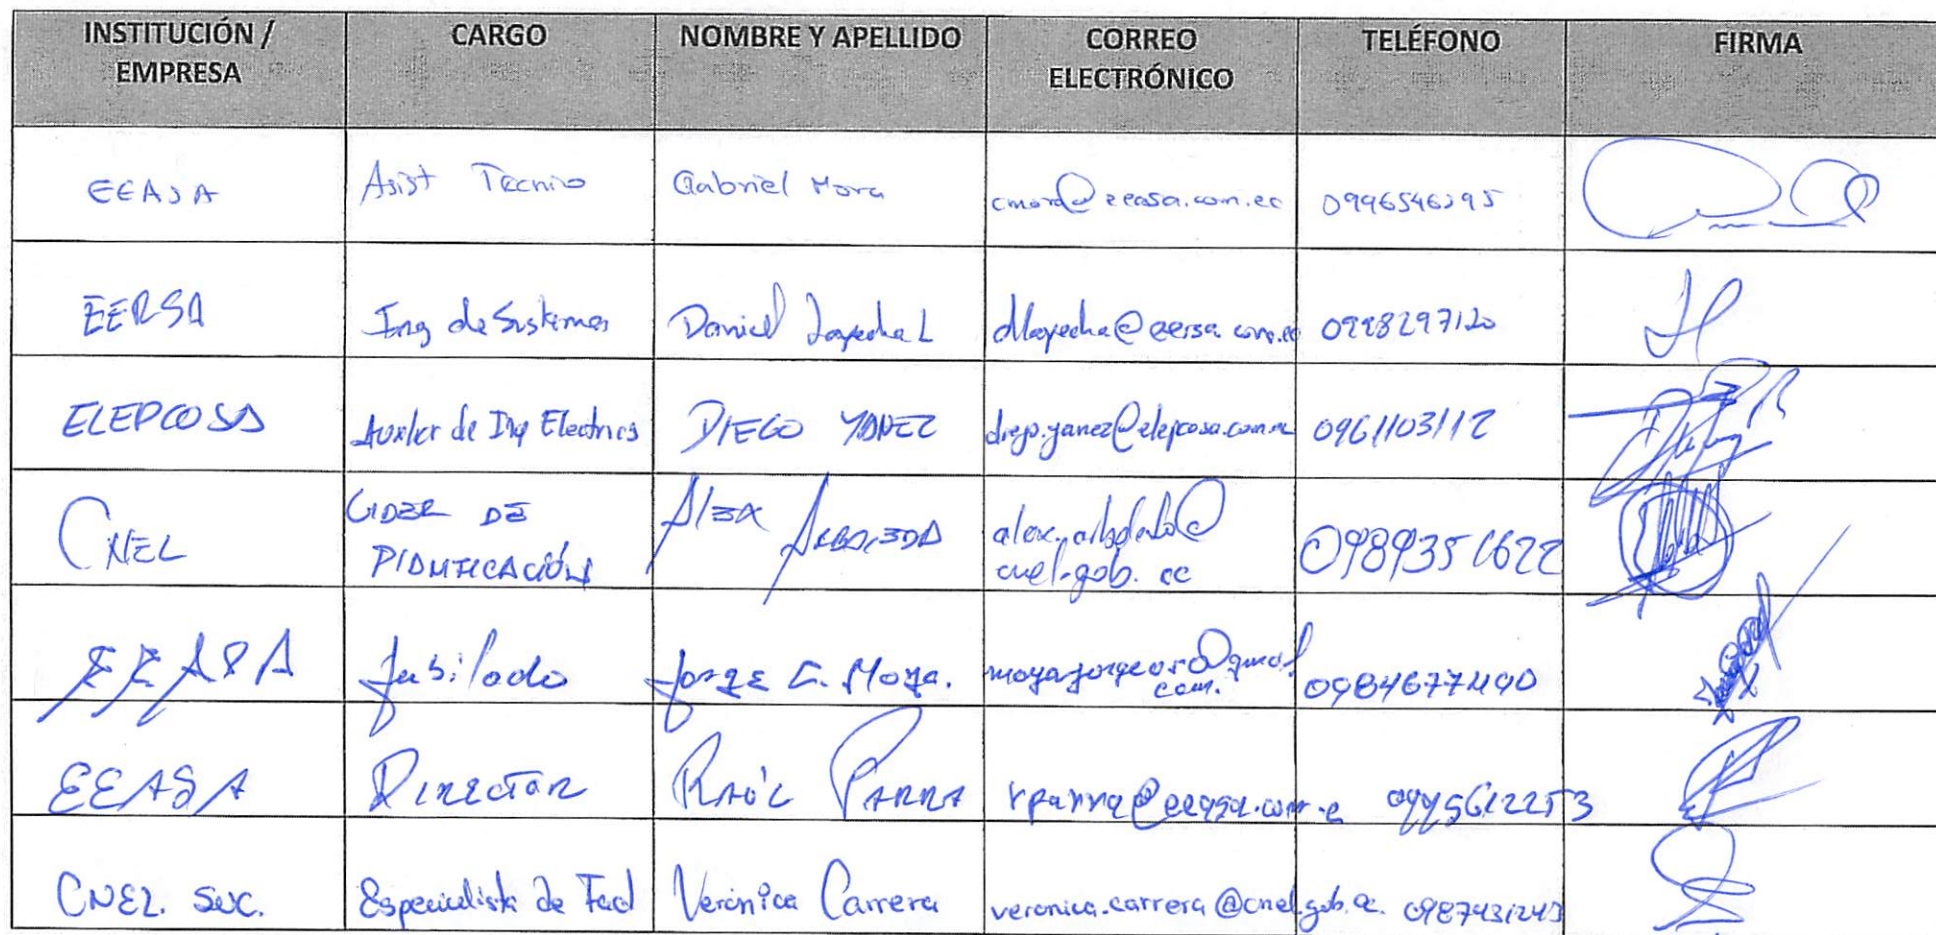 INSTITUCIÓN / EMPRESA CARGO NOMBRE Y APELLIDO CORREO ELECTRÓNICO TELÉFONO FIRMA
EEASA Asist Tecnio Gabriel Mora cmora@eeasa.com.ec 0996546295
EERSA Ing de Sistemas Daniel L dlayedra@eersa.com.ec 0998297120
ELEPCOSA Auxiliar de Ing Electrica DIEGO YANEZ diego.yanez@elepcosa.com.ec 0961103112
CNEL LIDER DE PLANIFICACIÓN ALEX ARBOLEDA alex.arboleda@cnel.gob.ec 0989351622
EEASA Jubilado Jorge E. Moya. 0984677490
EEASA DIRECTOR RAÚL PARRA rparra@eeasa.com.e 0995612253
CNEL. SUC. Especialista de Fact Verónica Carrera veronica.carrera@cnel.gob.ec. 0987431243